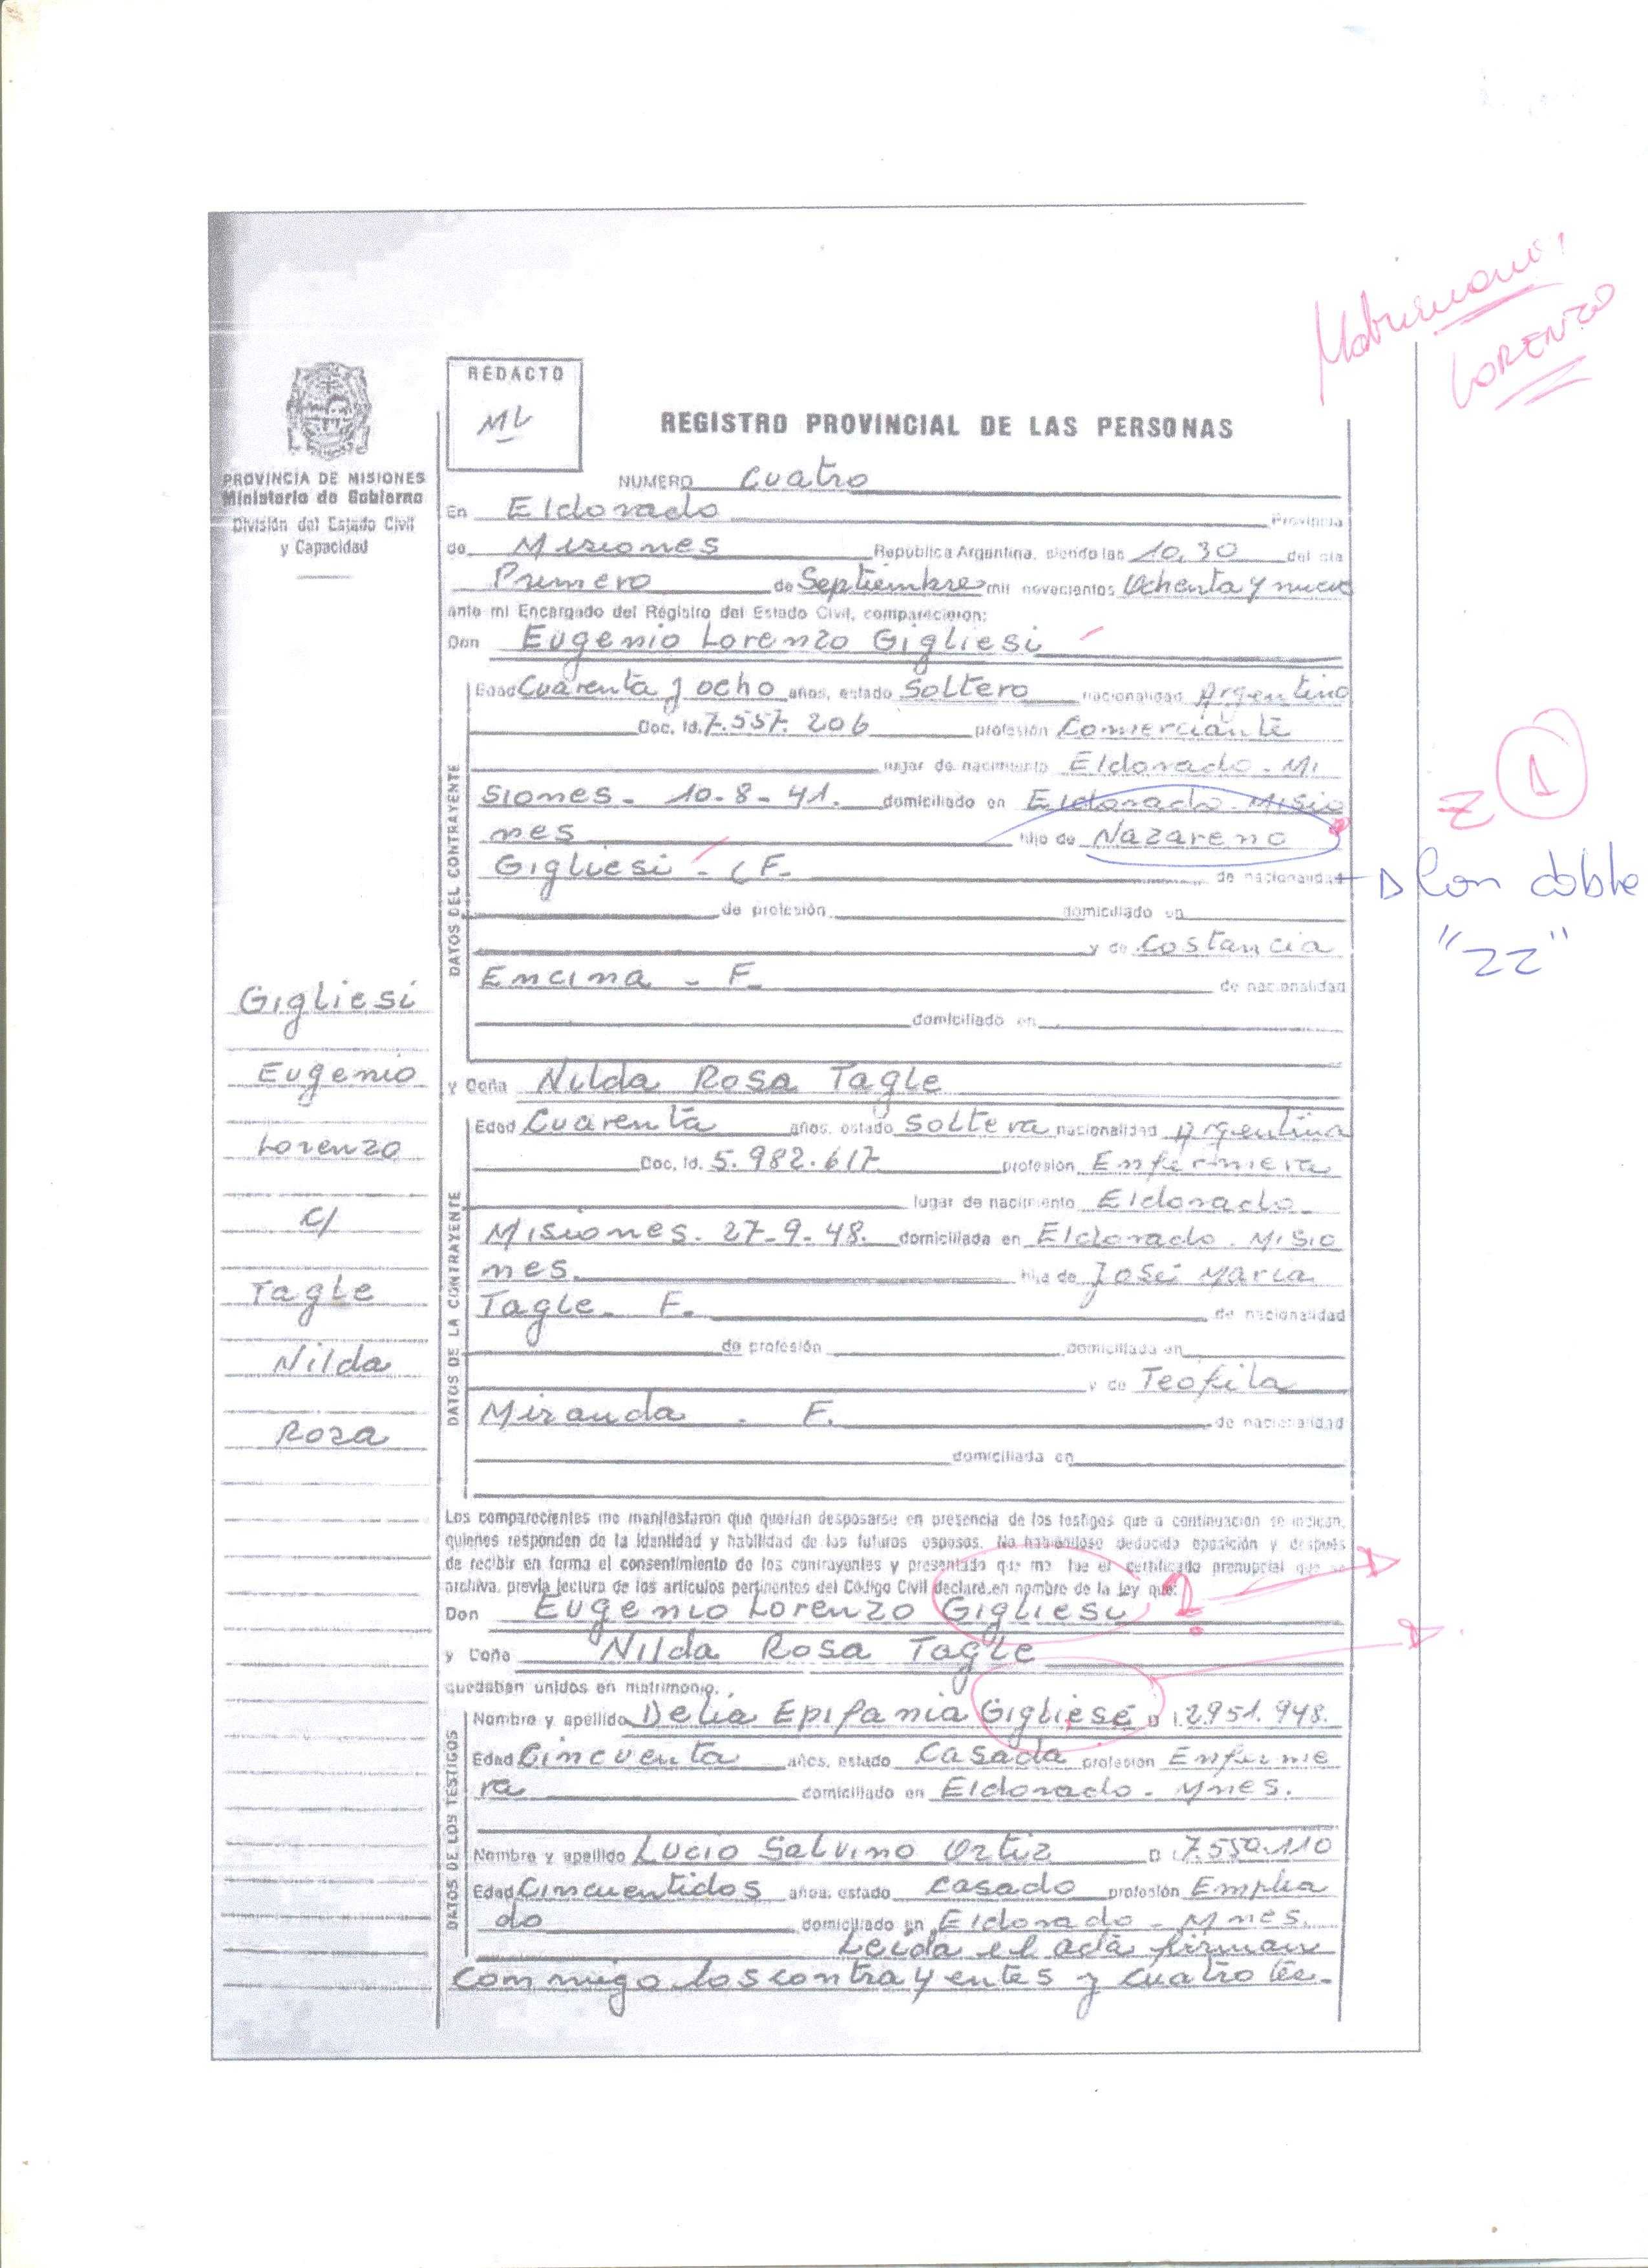 Matrimoni
LORENZO
REDACTO
ML
REGISTRO PROVINCIAL DE LAS PERSONAS
PROVINCIA DE MISIONES
Ministerio de Gobierno
División del Estado Civil
y Capacidad
NUMERO Cuatro
En Eldorado Provincia
de Misiones República Argentina, siendo las 10,30 del día
Primero de Septiembre mil novecientos Ochenta y nueve
ante mi Encargado del Registro del Estado Civil, comparecieron:
Don Eugenio Lorenzo Gigliesi
DATOS DEL CONTRAYENTE
Edad Cuarenta y ocho años, estado Soltero nacionalidad Argentino
Doc. Id. 7.557.206 profesión Comerciante
lugar de nacimiento Eldorado - Mi
siones - 10-8-41. domiciliado en Eldorado - Misio
nes hijo de Nazareno
Z 1
Gigliesi - (F. de nacionalidad
Con doble
"ZZ"
de profesión domiciliado en
y de Costancia
Encina - F. de nacionalidad
domiciliado en
Gigliesi
Eugenio
Lorenzo
c/
Tagle
Nilda
Rosa
y Doña Nilda Rosa Tagle
DATOS DE LA CONTRAYENTE
Edad Cuarenta años, estado Soltera nacionalidad Argentina
Doc. Id. 5.982.617 profesión Enfermera
lugar de nacimiento Eldorado -
Misiones. 27-9-48. domiciliada en Eldorado - Misio
nes. hija de José María
Tagle - F. de nacionalidad
de profesión domiciliada en
y de Teofila
Miranda - F. de nacionalidad
domiciliada en
Los comparecientes me manifestaron que querían desposarse en presencia de los testigos que a continuación se indican,
quienes responden de la identidad y habilidad de los futuros esposos. No habiéndose deducido oposición y después
de recibir en forma el consentimiento de los contrayentes y presentado que me fue el certificado prenupcial que se
archiva, previa lectura de los artículos pertinentes del Código Civil declaré en nombre de la ley que:
Don Eugenio Lorenzo Gigliesi
y Doña Nilda Rosa Tagle
quedaban unidos en matrimonio.
DATOS DE LOS TESTIGOS
Nombre y apellido Delia Epifania Gigliese D I. 2951.948.
Edad Cincuenta años, estado Casada profesión Enferme
ra domiciliado en Eldorado - Mnes.
Nombre y apellido Lucio Salvino Ortiz D 7.550.110
Edad Cincuentidos años, estado Casado profesión Emplea
do domiciliado en Eldorado - Mnes.
Leida el acta firman
conmigo los contrayentes y cuatro tes.